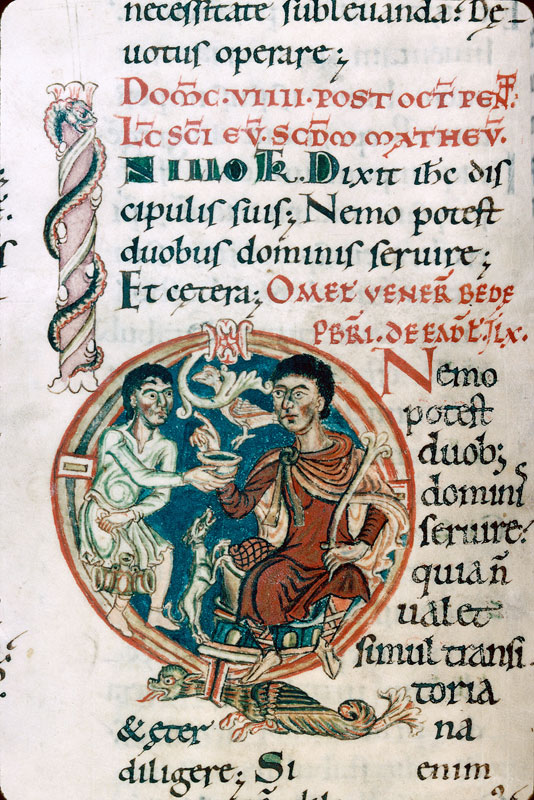 necessitate subleuanda: Dę
uotus operare;
DOM̄C. VIIII. POST OCT̄ PEN̄T:
LC̄ SC̄I EV̄. SCDM̄ MATHEV̄.
IN ILLO T̄R. Dixit ih̄c dis
cipulis suis; Nemo potest
duobus dominis seruire;
Et cętera; OMEL VENER̄ BEDE
PBR̄I. DE EAD̄
Nemo
potest
duob;
domini s
seruire:
quia n̄
ualet
simul transi
toria
& ęter na
diligere; Si enim